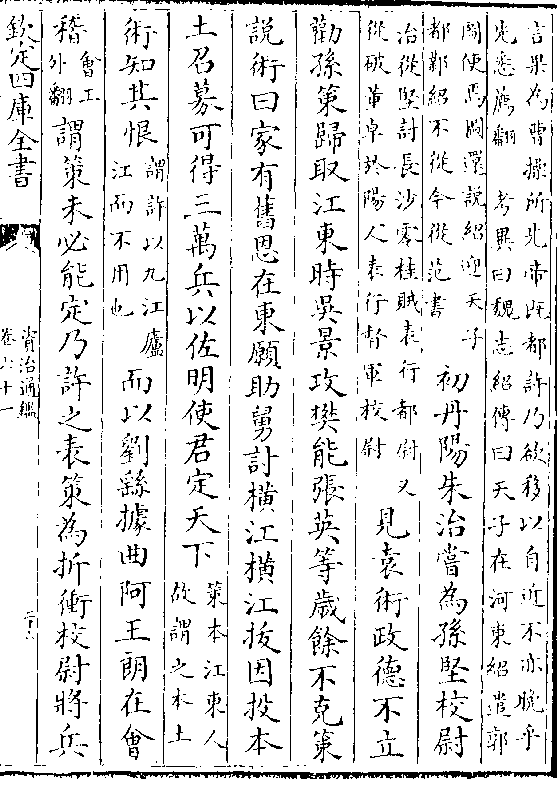 言果為曹操所北帝既都許乃欲移以自近不亦晚乎
先悉薦翻考異曰魏志紹傳曰天子在河東紹遣郭
圖使焉圖還說紹迎天子
都鄴紹不從今從范書
初丹陽朱治嘗為孫堅校尉
治從堅討長沙零桂賊表行都尉又
從破董卓於陽人表行督軍校尉
見袁術政德不立
勸孫策歸取江東時吳景攻樊能張英等歲餘不克策
說術曰家有舊恩在東願助舅討橫江橫江拔因投本
土召募可得三萬兵以佐明使君定天下
策本江東人
故謂之本土
術知其恨
謂許以九江廬
江而不用也
而以劉繇據曲阿王朗在會
稽
會工
外翻
謂策未必能定乃許之表策為折衝校尉將兵
欽定四庫全書
資治通鑑
卷六十一